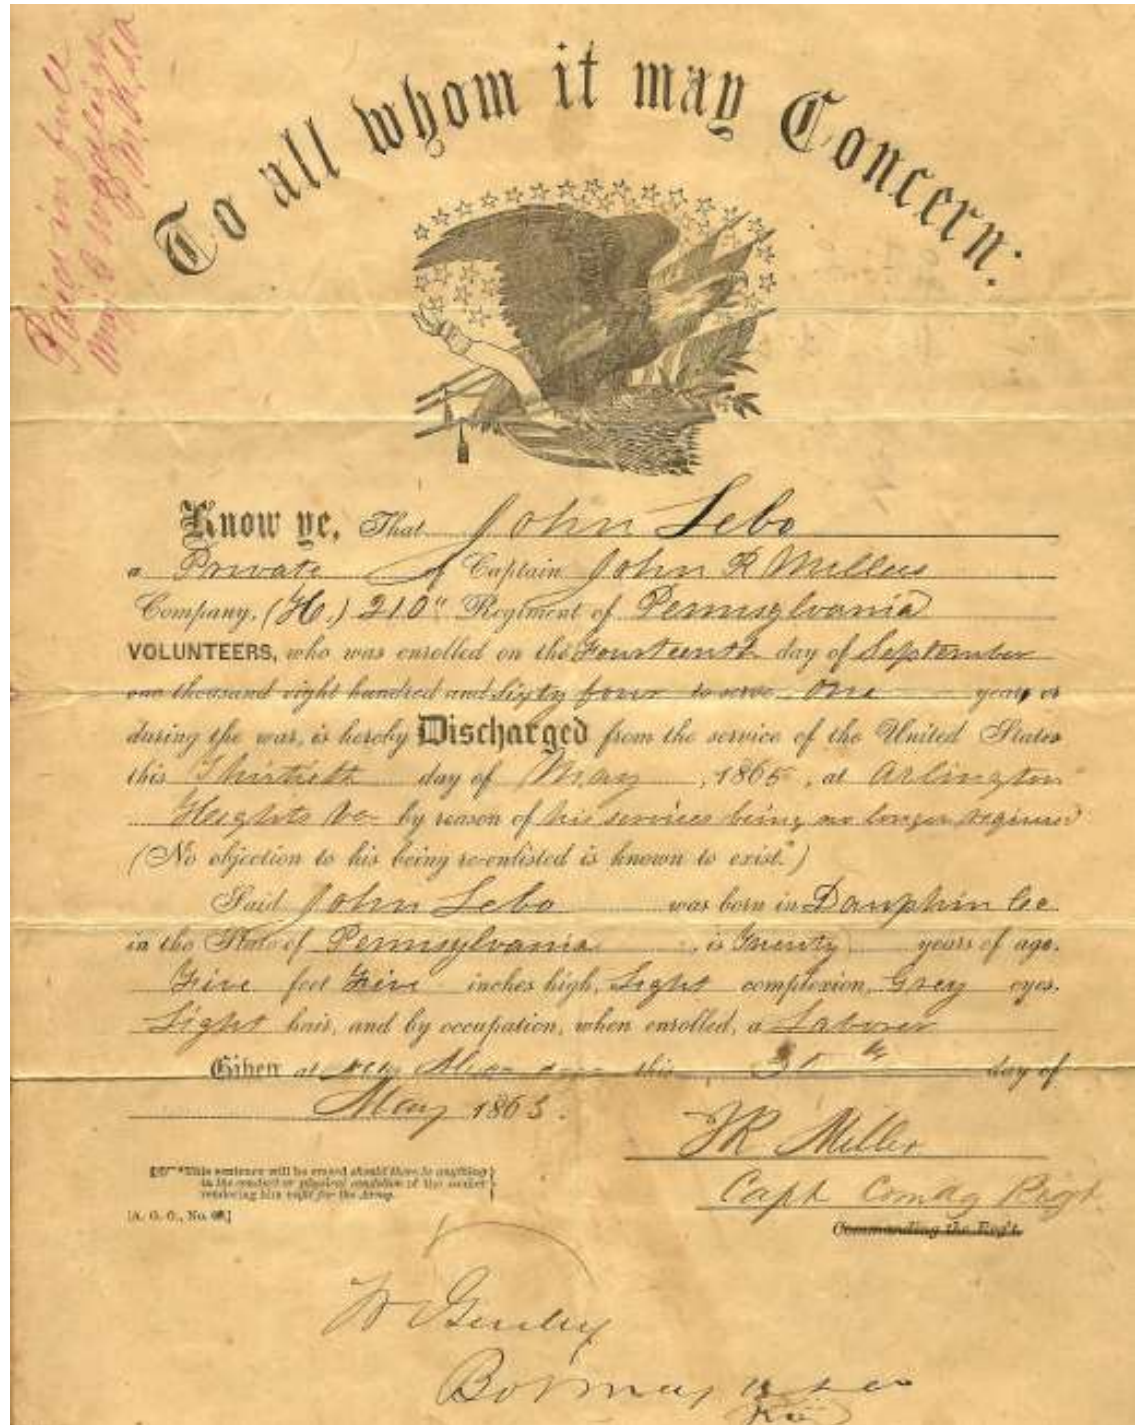 Paid in full
To all whom it may Concern:
Know ye, That John Lebo
a Private of Captain John R Millers
Company, (H.) 210" Regiment of Pennsylvania
VOLUNTEERS, who was enrolled on the Fourteenth day of September
one thousand eight hundred and Sixty four to serve One years or
during the war, is hereby Discharged from the service of the United States
this Thirtieth day of May, 1865, at Arlington
Heights Va by reason of his services being no longer required
(No objection to his being re-enlisted is known to exist.*)
Said John Lebo was born in Dauphin Co
in the State of Pennsylvania, is Twenty years of age,
Five feet Five inches high, Light complexion, Grey eyes,
Light hair, and by occupation, when enrolled, a Laborer
Given at this 30th day of
May 1865.
JR Miller
Capt Comdg Regt
Commanding the Reg't.
*This sentence will be erased should there be anything
in the conduct or physical condition of the soldier
rendering him unfit for the Army.
[A. G. O., No. ]